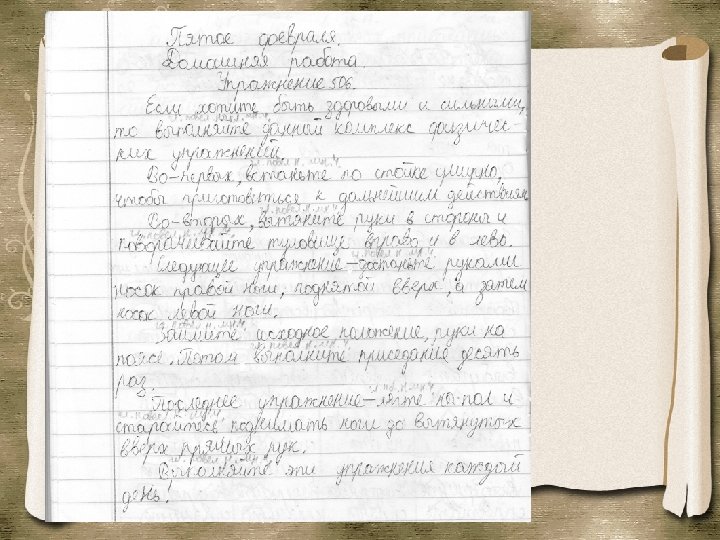 Пятое февраля.
Домашняя работа.
Упражнение 506.
Если хотите быть здоровыми и сильными,
то выполняйте данный комплекс физичес-
ких упражнений.
Во-первых, встаньте по стойке смирно,
чтобы приготовиться к дальнейшим действиям
Во-вторых, вытяните руки в стороны и
поворачивайте туловище вправо и в лево.
Следующее упражнение – достаньте руками
носок правой ноги, поднятой вверх, а затем
носок левой ноги.
Займите исходное положение, руки на
поясе. Потом выполните приседание десять
раз.
Последнее упражнение – лягте на пол и
старайтесь поднимать ноги до вытянутых
вверх прямых рук.
Выполняйте эти упражнения каждый
день!